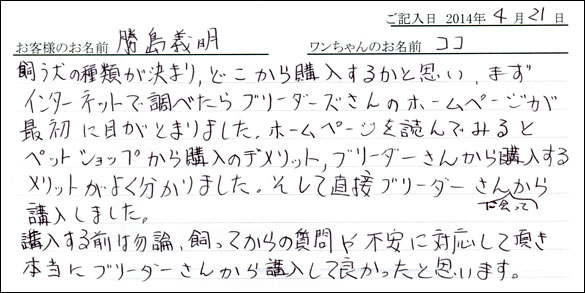 ご記入日 2014年 4月 21日
お客様のお名前 勝島義明 ワンちゃんのお名前 ココ
飼う犬の種類が決まり、どこから購入するかと思い、まず
インターネットで調べたらブリーダーズさんのホームページが
最初に目がとまりました。ホームページを読んでみると
ペットショップから購入のデメリット、ブリーダーさんから購入する
メリットがよく分かりました。そして直接ブリーダーさんから
に会って
購入しました。
購入する前は勿論、飼ってからの質問や不安に対応して頂き
本当にブリーダーさんから購入して良かったと思います。